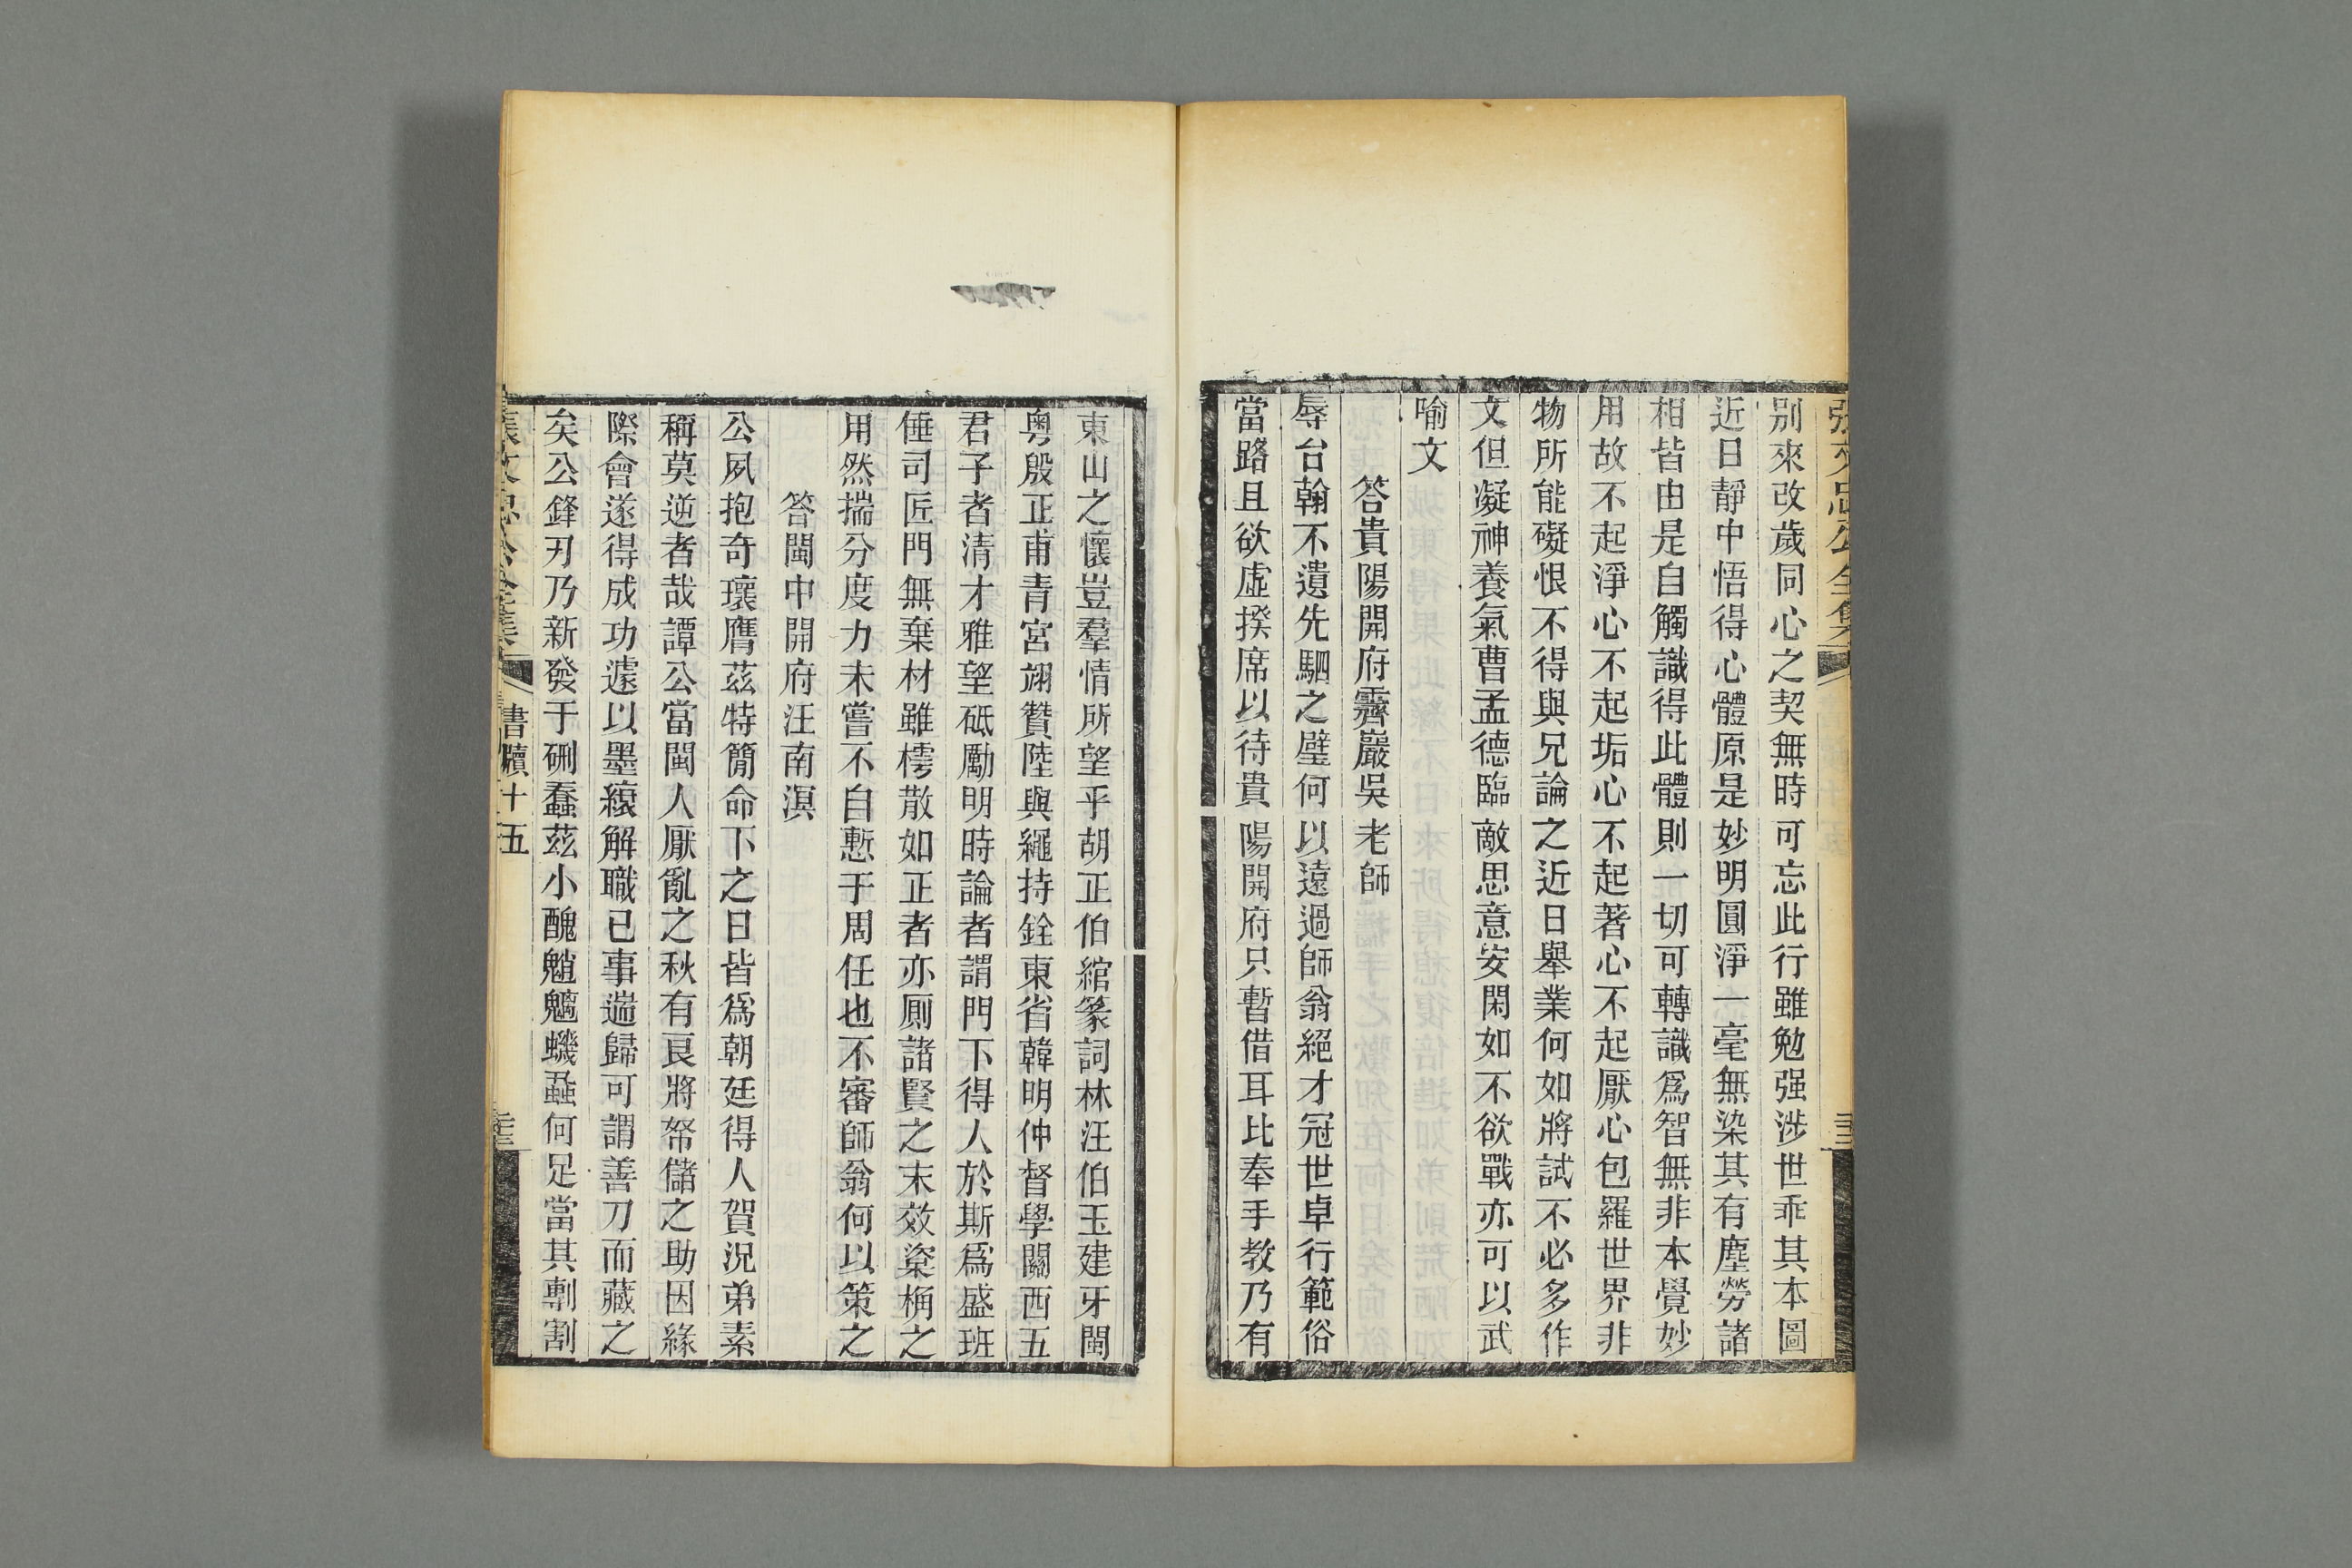 張文忠公全集
別來改歲同心之契無時可忘此行雖勉强涉世乖其本圖
近日靜中悟得心體原是妙明圓淨一毫無染其有塵勞諸
相皆由是自觸識得此體則一切可轉識爲智無非本覺妙
用故不起淨心不起垢心不起著心不起厭心包羅世界非
物所能礙恨不得與兄論之近日舉業何如將試不必多作
文但凝神養氣曹孟德臨敵思意安閑如不欲戰亦可以武
喻文
答貴陽開府霽巖吳老師
辱台翰不遺先駟之璧何以遠過師翁絕才冠世卓行範俗
當路且欲虛揆席以待貴陽開府只暫借耳比奉手教乃有
東山之懷豈羣情所望乎胡正伯綰篆詞林汪伯玉建牙閩
粵殷正甫青宮翊贊陸與繩持銓東省韓明仲督學關西五
君子者清才雅望砥勵明時論者謂門下得人於斯爲盛班
倕司匠門無棄材雖樗散如正者亦厠諸賢之末效楶桷之
用然揣分度力未嘗不自慙于周任也不審師翁何以策之
答閩中開府汪南溟
公夙抱奇瓌膺茲特簡命下之日皆爲朝廷得人賀況弟素
稱莫逆者哉譚公當閩人厭亂之秋有良將帑儲之助因緣
際會遂得成功遽以墨縗解職已事遄歸可謂善刀而藏之
矣公鋒刃乃新發于硎蠢茲小醜魑魅蟣蝨何足當其剸割
張文忠公全集
書牘十五